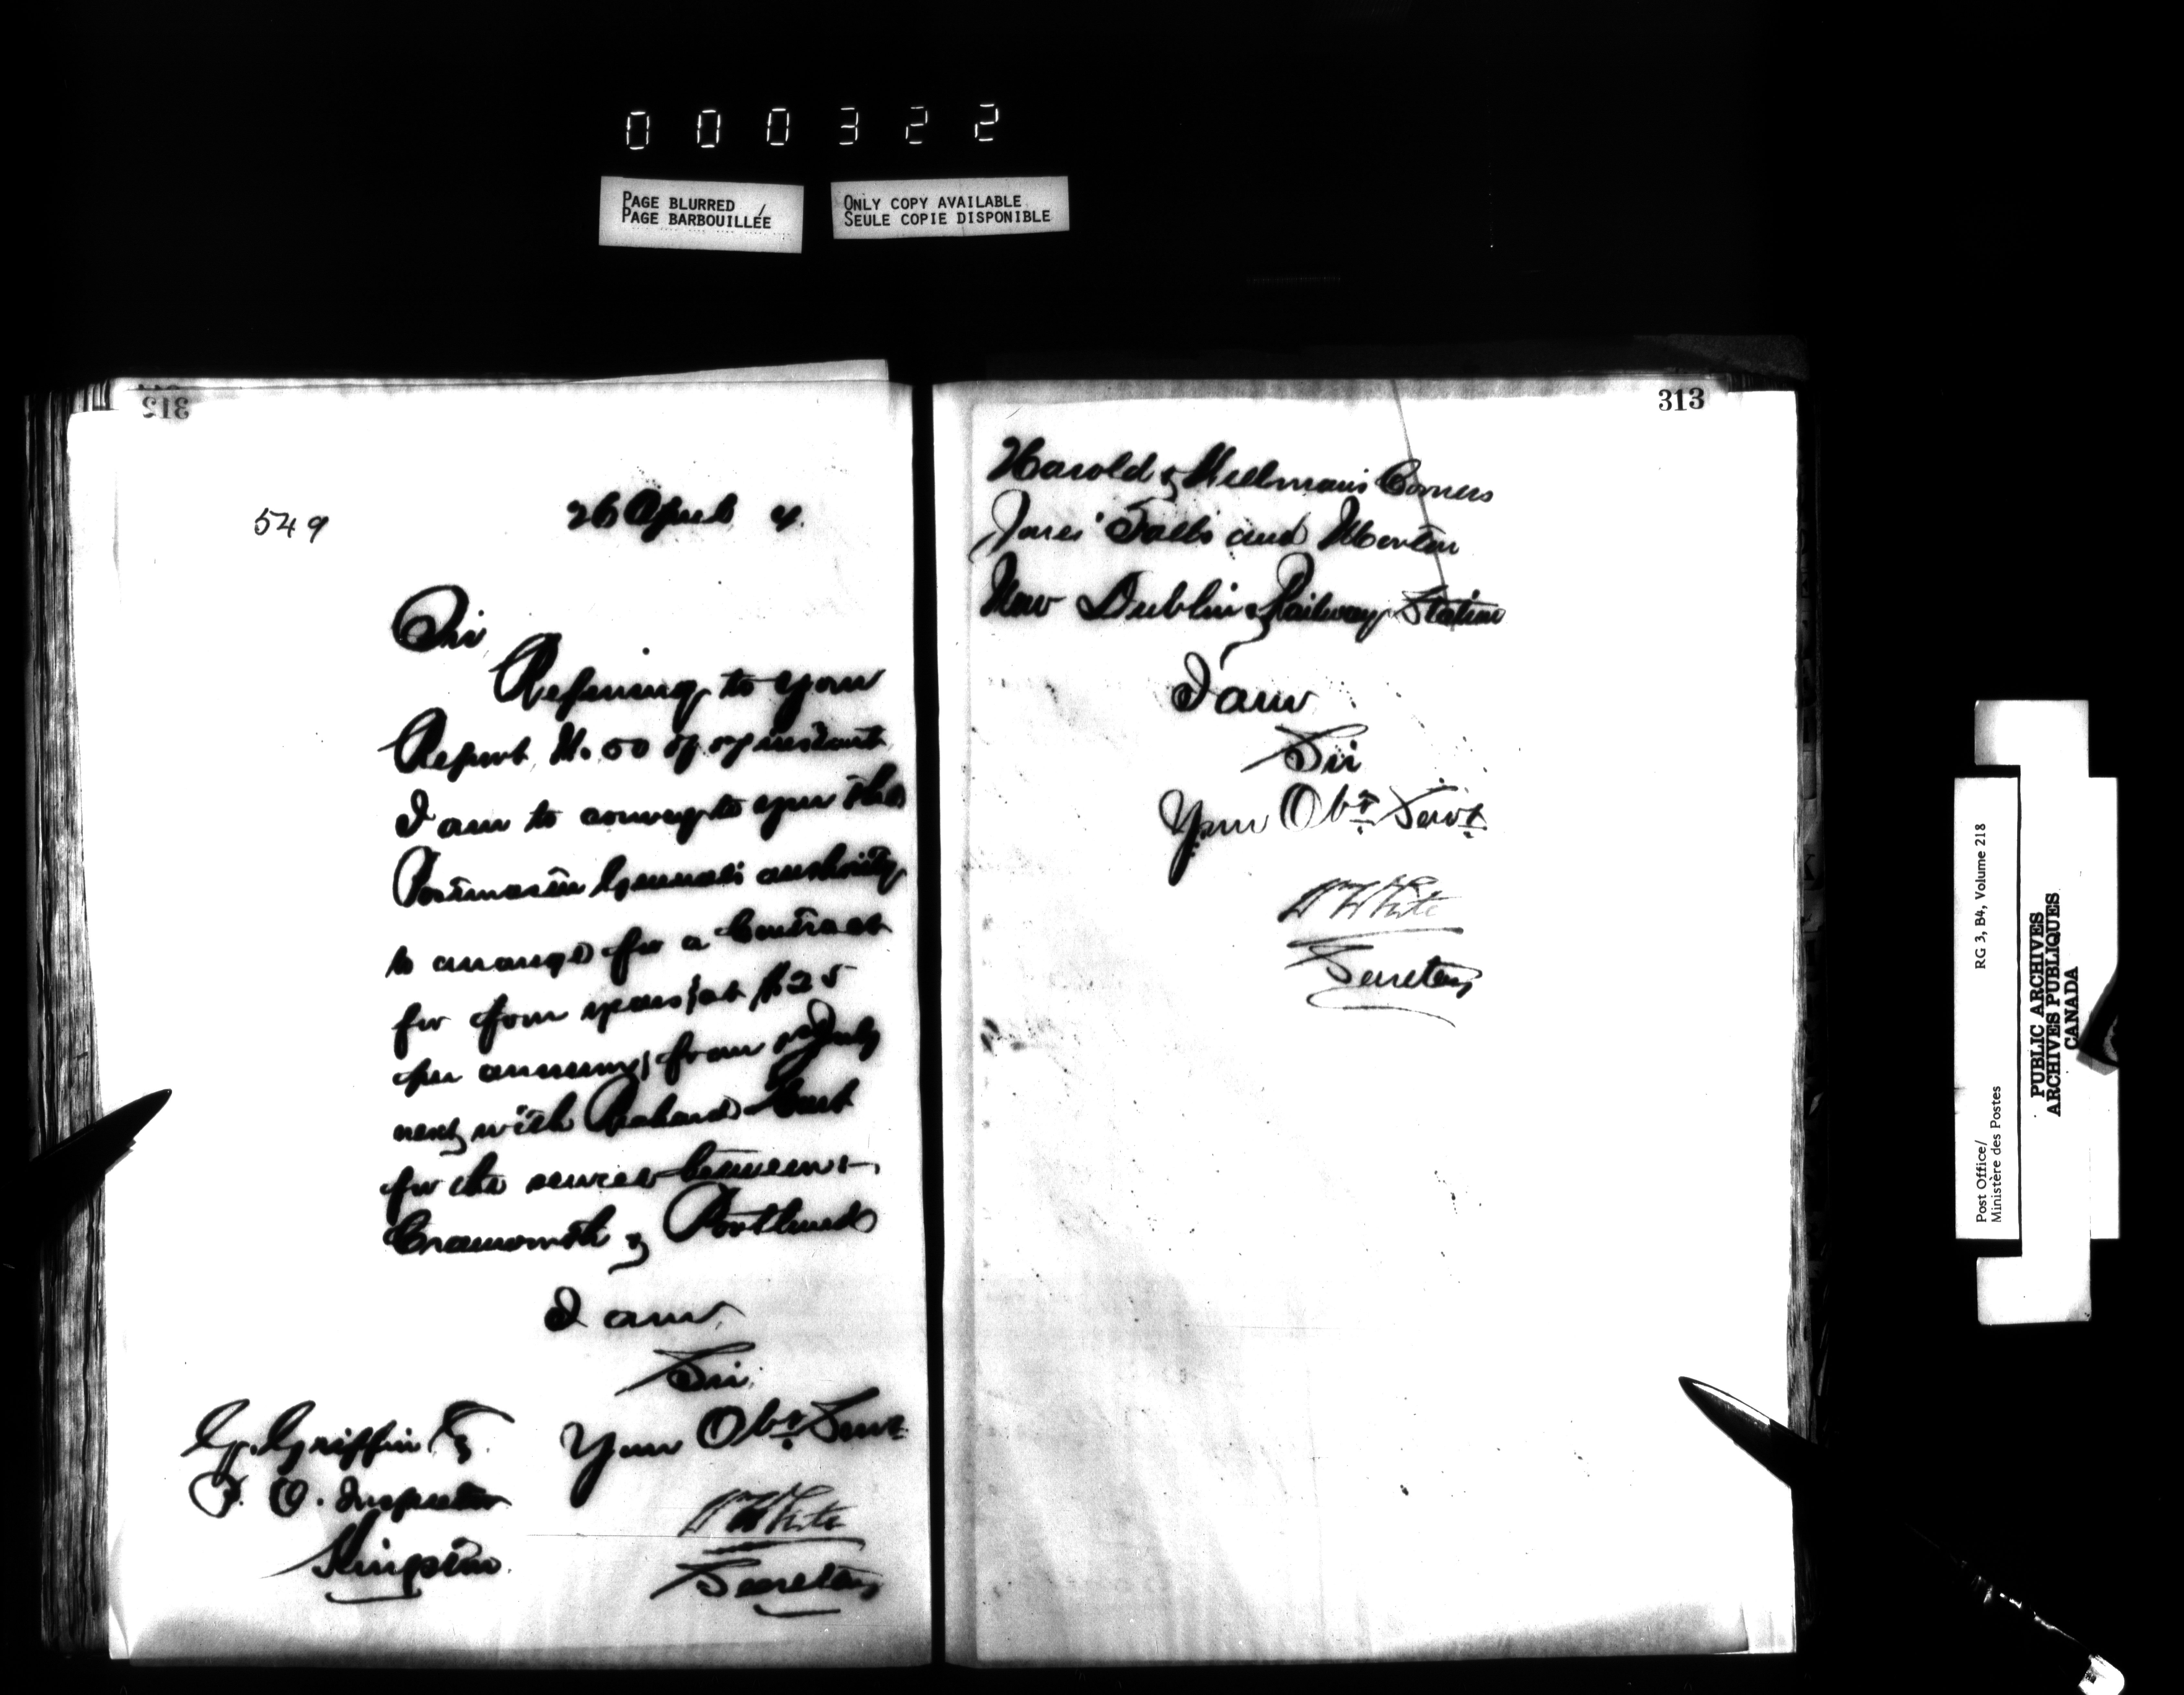 000322
PAGE BLURRED
PAGE BARBOUILLÉE
ONLY COPY AVAILABLE
SEULE COPIE DISPONIBLE
312
549 26 April 4.
Sir
Referring to your
Report No. 50 of instant
I am to convey to you the
Postmaster General's authority
to arrange for a Contract
for four years (at $25
per annum) from July
next with
for the service between:—
Cranworth & Portland
I am
Sir
Your Obt Servt
Wm White
Secretary
G. Griffin
P. O. Inspector
Kingston.
313
Harold & Corners
Jones' Falls and Morton
New Dublin & Railway Station
I am
Sir
Your Obt Servt
Wm White
Secretary
Post Office/ RG 3, B4, Volume 218
Ministère des Postes
PUBLIC ARCHIVES
ARCHIVES PUBLIQUES
CANADA